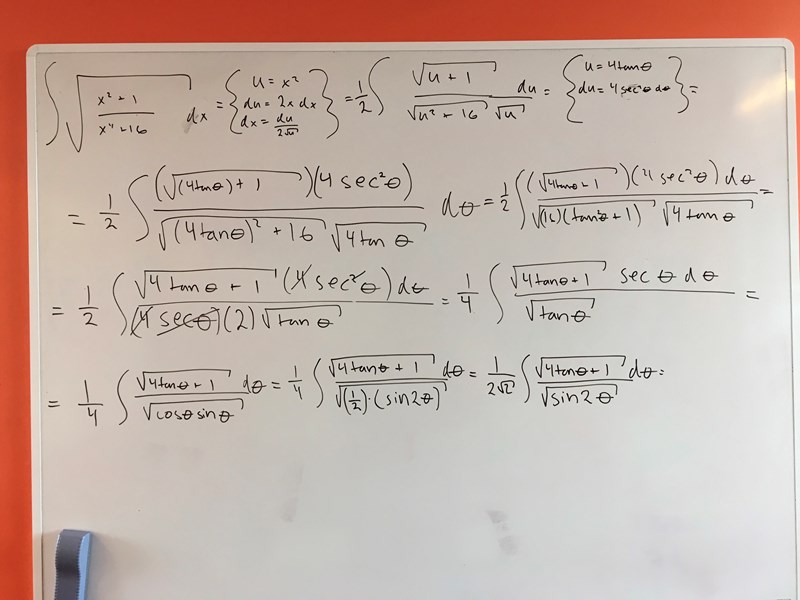 ∫ √((x² + 1)/(x⁴ + 16)) dx = { u = x², du = 2x dx, dx = du/(2√u) } = 1/2 ∫ √(u + 1) / (√(u² + 16) √u) du = { u = 4tanθ, du = 4sec²θ dθ } =
= 1/2 ∫ (√((4tanθ) + 1))(4 sec²θ) / (√((4tanθ)² + 16) √(4tan θ)) dθ = 1/2 ∫ (√(4tanθ + 1))(4 sec²θ) dθ / (√((16)(tan²θ + 1)) √(4 tan θ)) =
= 1/2 ∫ √(4 tan θ + 1) (4 sec²θ) dθ / ((4 sec θ)(2) √(tan θ)) = 1/4 ∫ √(4tanθ + 1) sec θ dθ / √(tan θ) =
= 1/4 ∫ √(4tanθ + 1) / √(cosθ sinθ) dθ = 1/4 ∫ √(4tanθ + 1) / √((1/2)·(sin2θ)) dθ = 1/(2√2) ∫ √(4tanθ + 1) / √(sin 2θ) dθ =